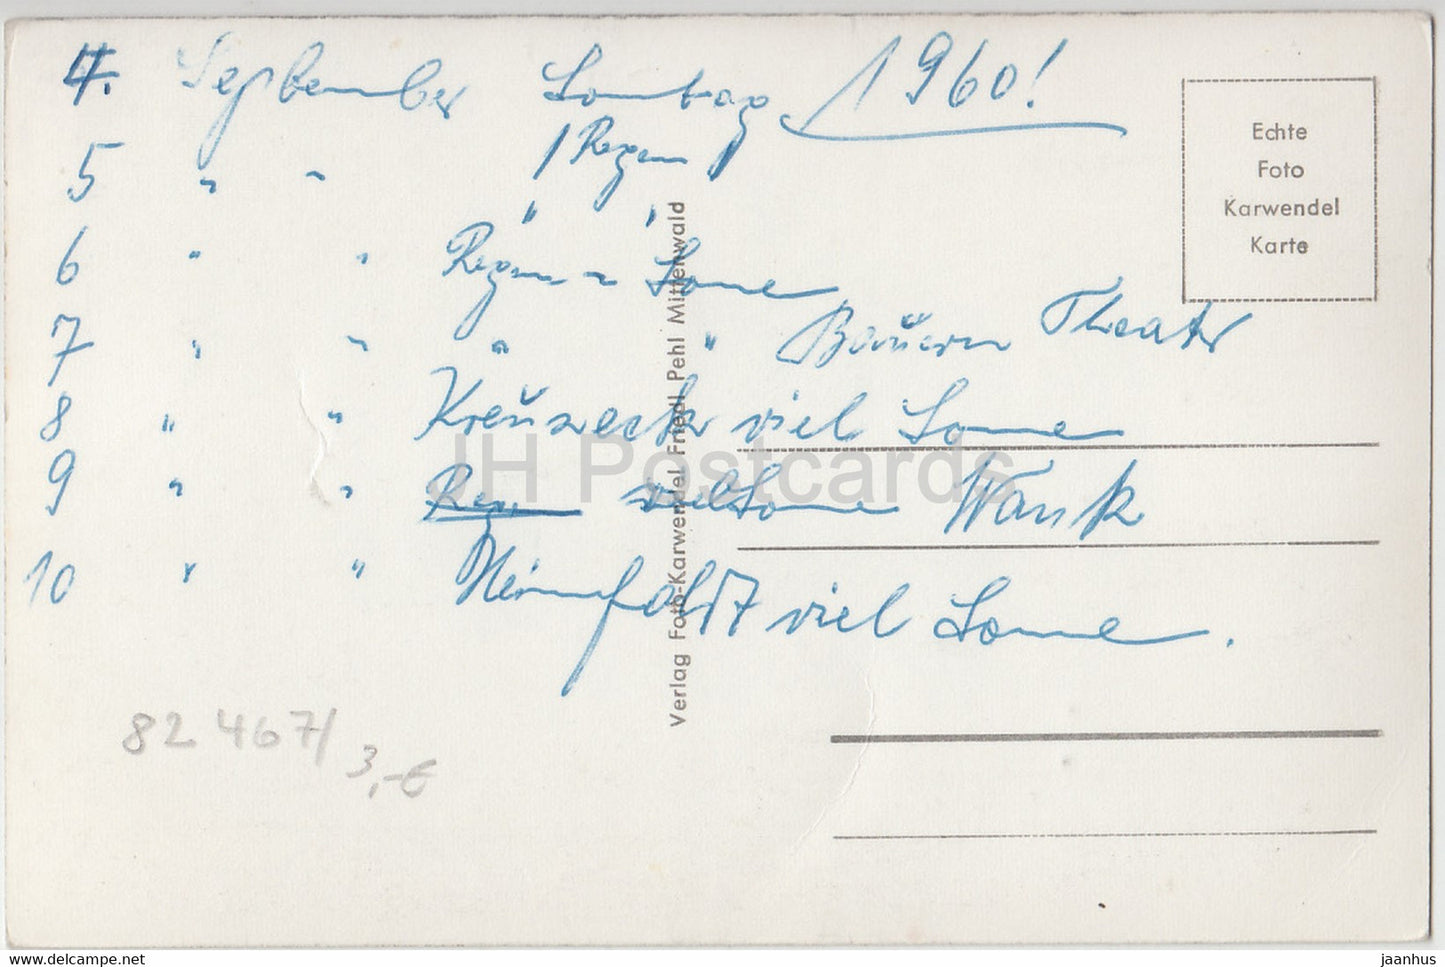 4. September Sonntag 1960!
/ Regen /
5 " " " "
6 " " Regen u Sonne
7 " " " " Bauern Theater
8 " " Kreuzeck viel Sonne
9 " " Regen viel Sonne Wank
10 " " Heimfahrt viel Sonne.
Echte
Foto
Karwendel
Karte
Verlag Foto-Karwendel Friedl Pehl Mittenwald
82 467/
3,-€
JH Postcards
www.delcampe.net
jaanhus